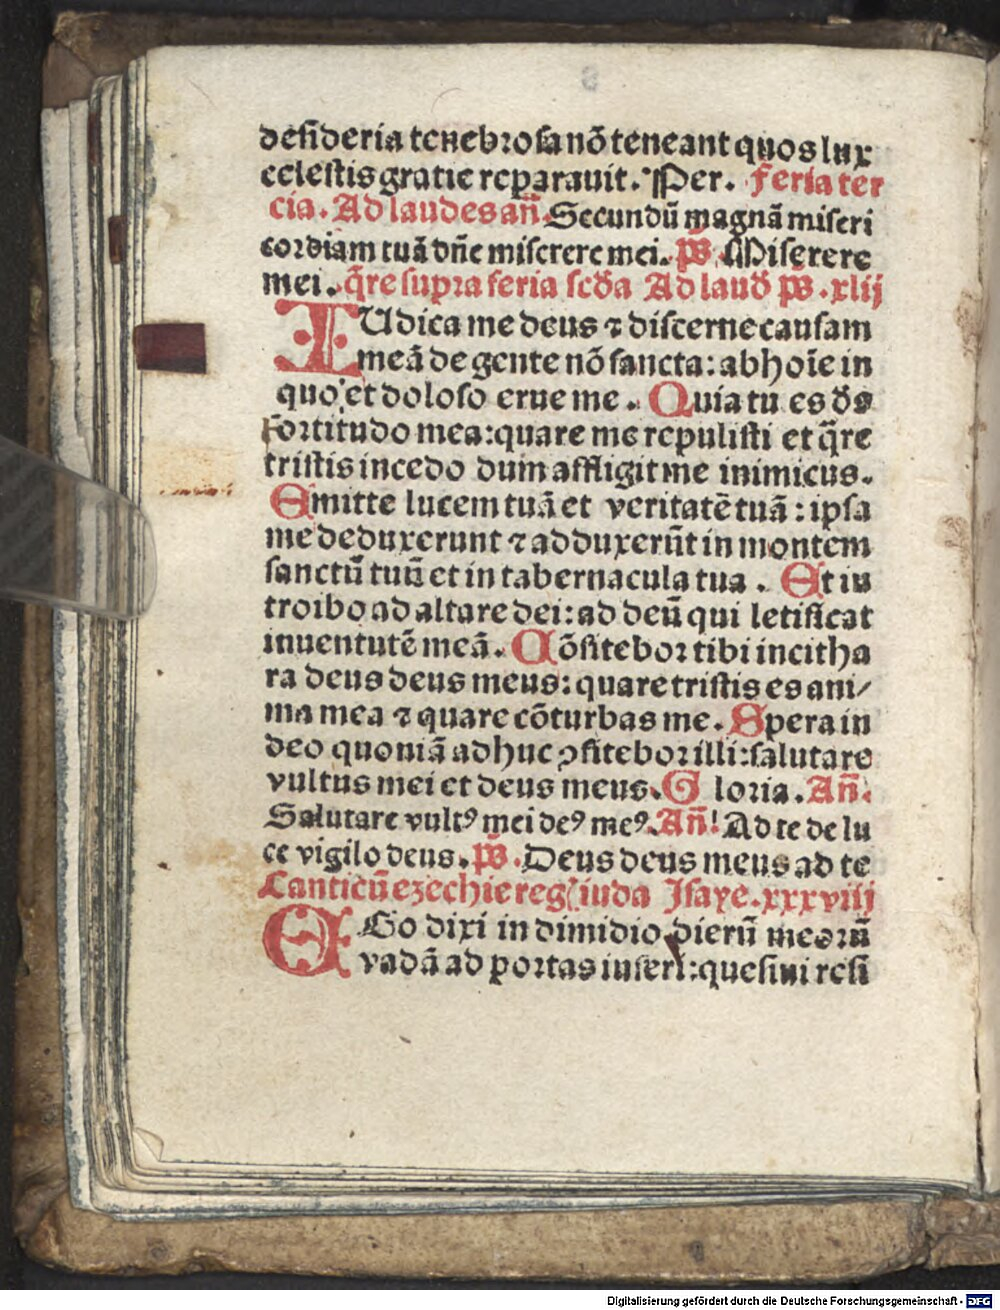 desideria tenebrosa nō teneant quos lux
celestis gratie reparauit. Per. feria ter
cia. Ad laudes an̄. Secundū magnā miseri
cordiam tuā dn̄e miserere mei. p̄s. Miserere
mei. q̄re supra feria scd̄a Ad laud̄ p̄s. xlij
IUdica me deus ⁊ discerne causam
meā de gente nō sancta: ab hoīe in
quo et doloso erue me. Quia tu es d̄s
fortitudo mea: quare me repulisti et q̄re
tristis incedo dum affligit me inimicus.
Emitte lucem tuā et veritatē tuā: ipsa
me deduxerunt ⁊ adduxerūt in montem
sanctū tuū et in tabernacula tua. Et in
troibo ad altare dei: ad deū qui letificat
inuentutē meā. Cōfitebor tibi in citha
ra deus deus meus: quare tristis es ani/
ma mea ⁊ quare cōturbas me. Spera in
deo quoniā adhuc ꝯfitebor illi: salutare
vultus mei et deus meus. Gloria. An̄.
Salutare vultꝰ mei deꝰ meꝰ. An̄! Ad te de lu
ce vigilo deus. p̄s. Deus deus meus ad te
Canticū ezechie reg(iuda Isaye. xxxviij
EGo dixi in dimidio dierū meorū
vadā ad portas inferi: quesiui resi
Digitalisierung gefördert durch die Deutsche Forschungsgemeinschaft - DFG